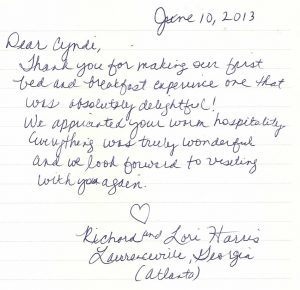 June 10, 2013
Dear Cyndi,
Thank you for making our first
bed and breakfast experience one that
was absolutely delightful!
We appriciated your warm hospitality
Everything was truly wonderful
and we look forward to visiting
with you again.
Richard and Lori Harris
Lawrenceville, Georgia
(Atlanta)